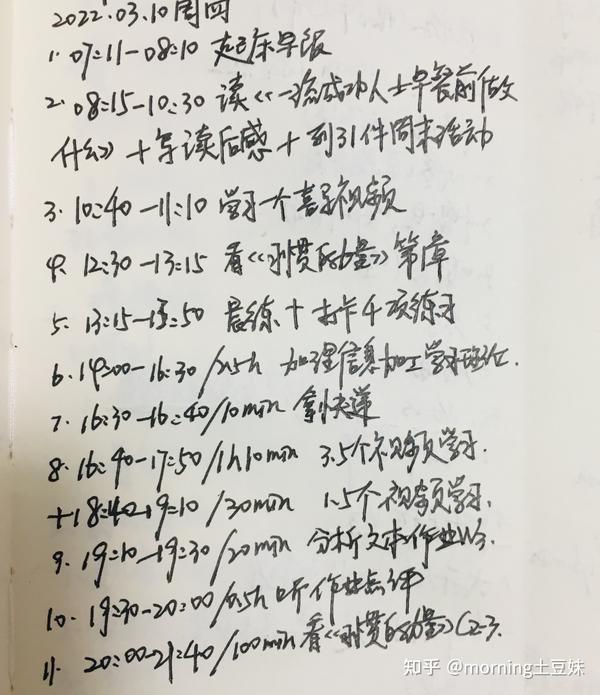 2022.03.10周四
1. 07:11-08:10 起床早饭
2. 08:15-10:30 读《一流成功人士早餐前做
什么》+写读后感+列31件周末活动
3. 10:40-11:10 学习一个喜导视频
4. 12:30-13:15 看《习惯的力量》第章
5. 13:15-13:50 晨练+打卡4项练习
6. 14:00-16:30/2.5h 加理信息加工学习理论.
7. 16:30-16:40/10min 拿快递
8. 16:40-17:50/1h10min 3.5个视频学习.
+18:40-19:10/30min 1.5个视频学习.
9. 19:10-19:30/20min 分析文本作业W3.
10. 19:30-20:00/0.5h 听作业点评
11. 20:00-21:40/100min 看《习惯的力量》C2-3.
知乎 @morning土豆妹